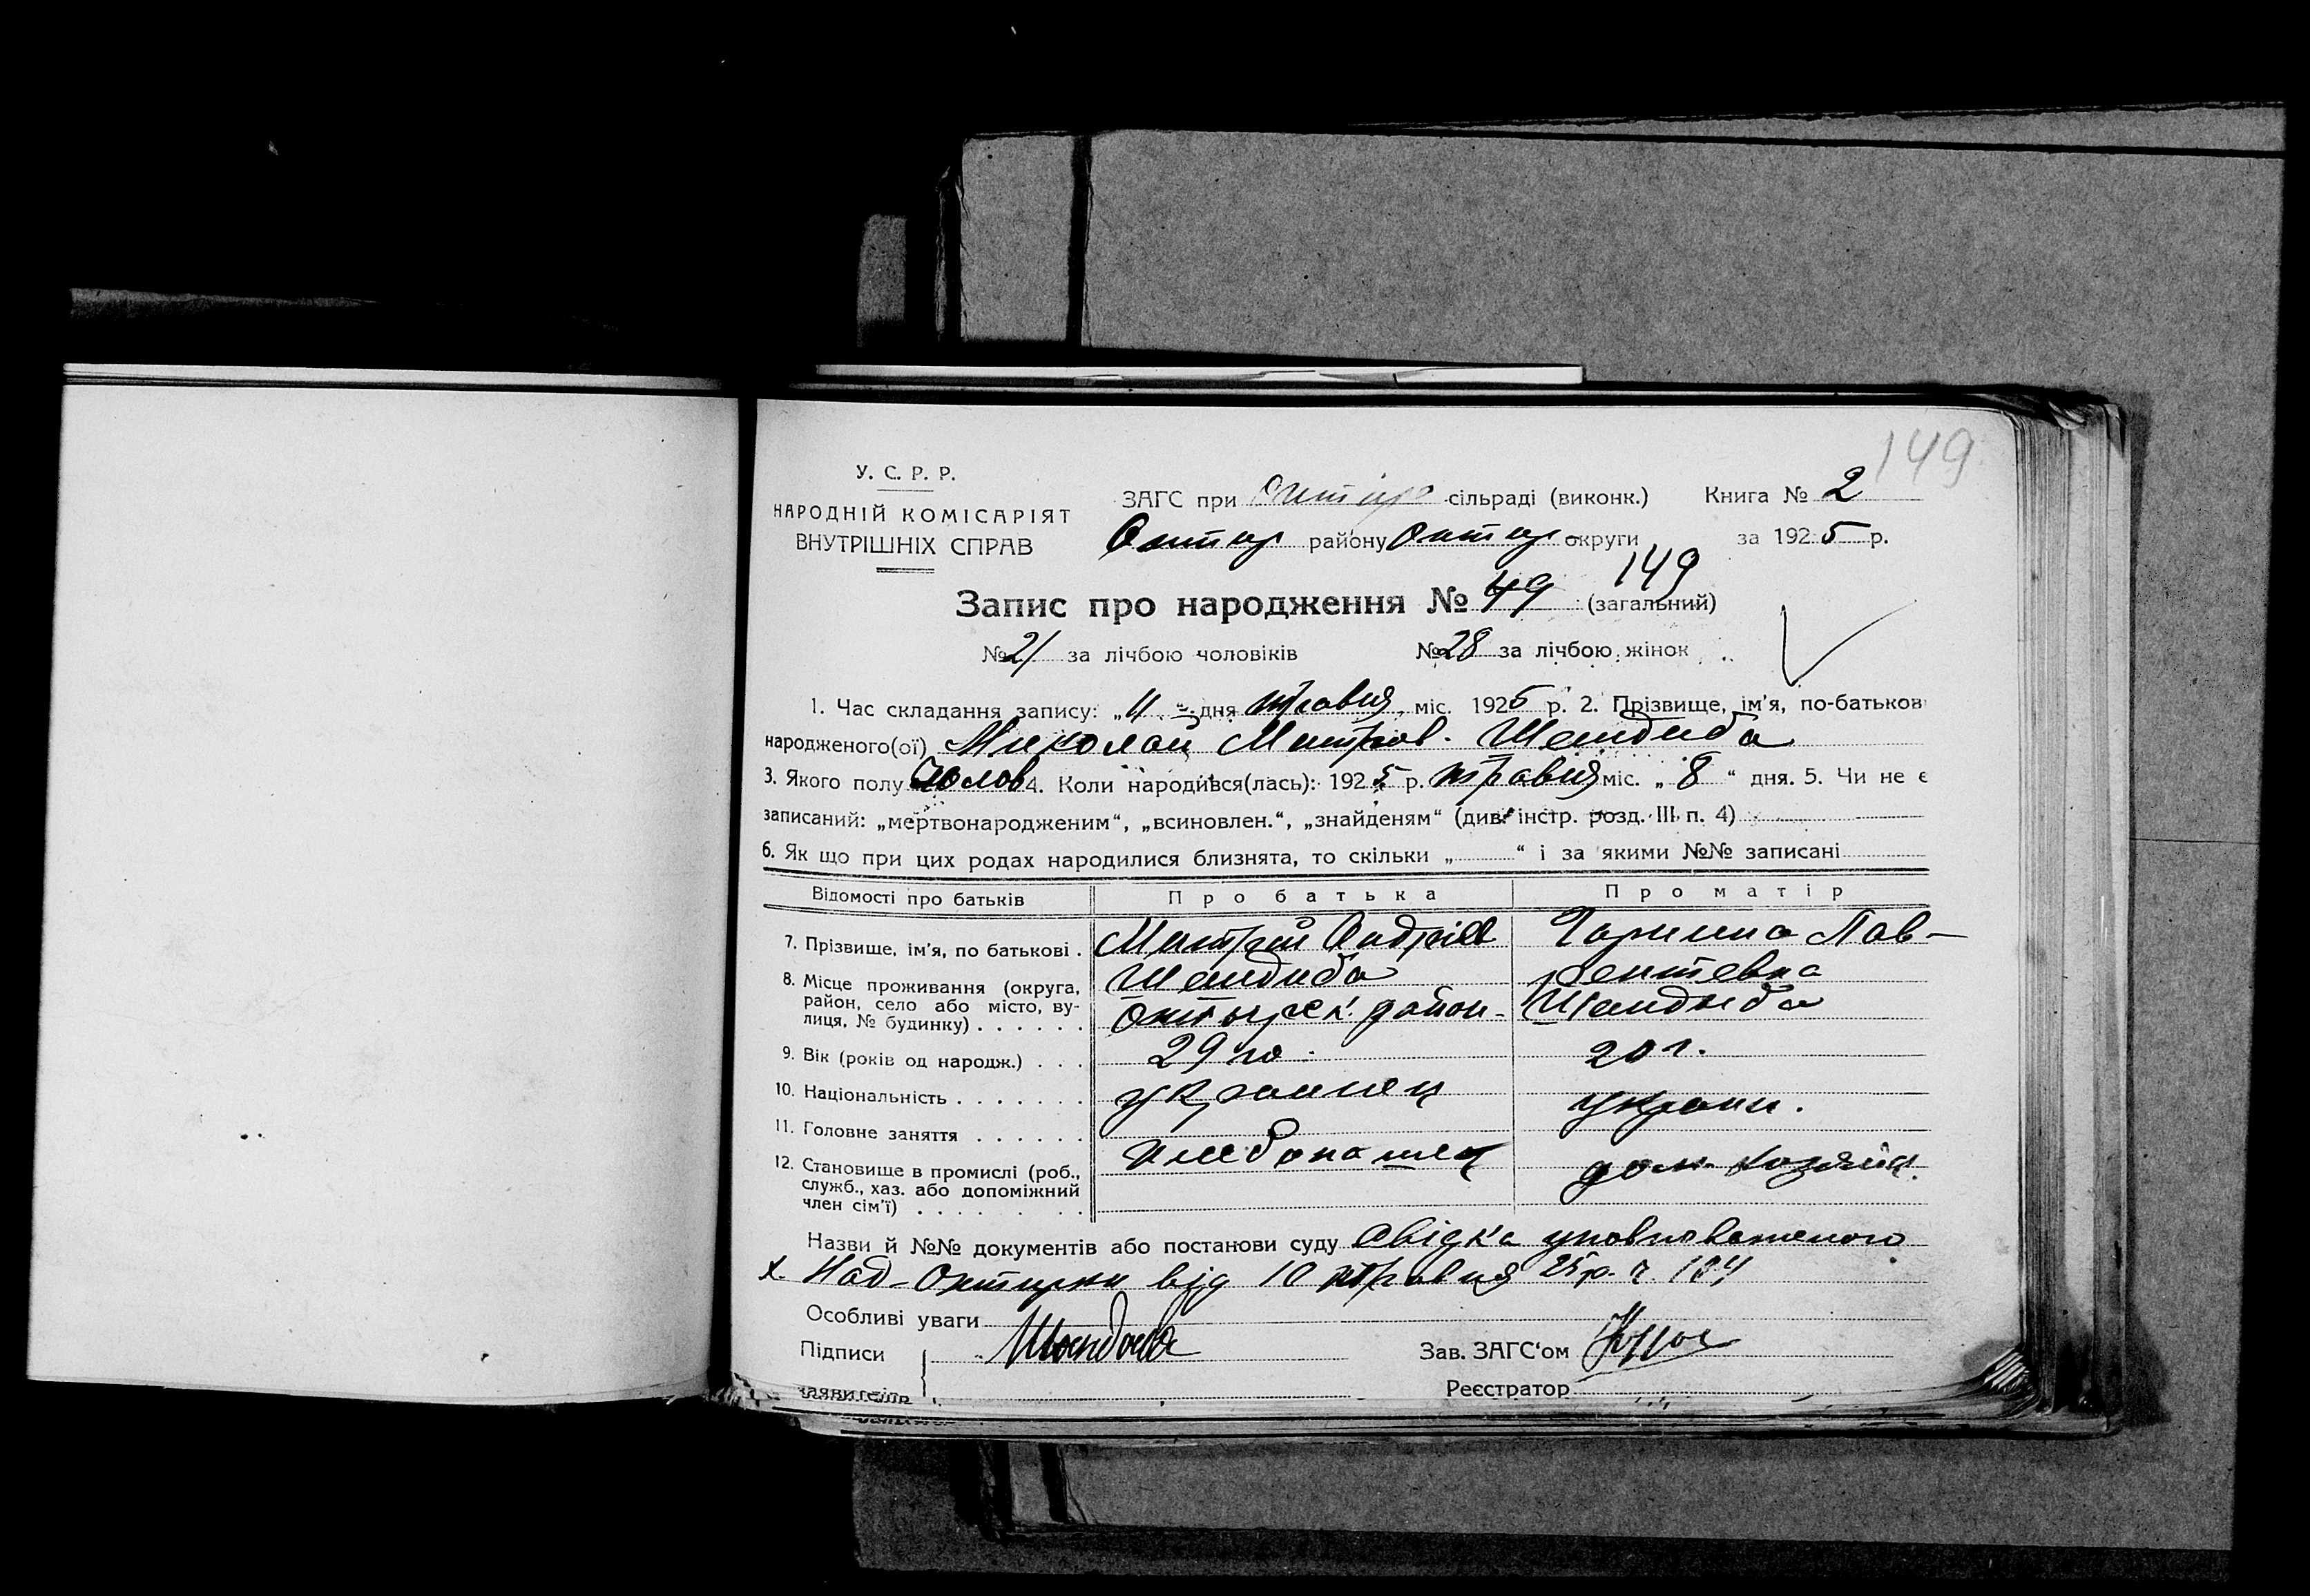 149
У. С. Р. Р.
НАРОДНІЙ КОМІСАРІЯТ
ВНУТРІШНІХ СПРАВ
ЗАГС при сільраді (виконк.) Книга № 2
Охтир району Охтир округи за 1925 р.
149
Запис про народження № 49 (загальний)
№ 21 за лічбою чоловіків № 28 за лічбою жінок
1. Час складання запису: „11“ дня травня міс. 1925 р. 2. Прізвище, ім'я, по-батьков
народженого(ої) Николай Митров. Шандиба
3. Якого полу Чолов 4. Коли народився(лась): 1925 р. травня міс. „8“ дня. 5. Чи не є
записаний: „мертвонародженим“, „всиновлен.“, „знайденям“ (див. інстр. розд. III п. 4)
6. Як що при цих родах народилися близнята, то скільки „ “ і за якими №№ записані
Відомості про батьків Про батька Про матір
7. Прізвище, ім'я, по батькові . Митрий Андріев Шандиба Лав-рентевна Шандиба
8. Місце проживання (округа, район, село або місто, ву-лиця, № будинку) . . . . . . Охтырск. район-
9. Вік (років од народж.) . . . 29 20 г.
10. Національність . . . . . . . украинец украин.
11. Головне заняття . . . . . . хлебопашец дом. хозяйк.
12. Становище в промислі (роб.,
служб., хаз. або допоміжний
член сім'ї) . . . . . . . .
Назви й №№ документів або постанови суду свідка уповноваженого
х. Над-Охтирки від 10 травня 25 р. ч. 104
Особливі уваги
Підписи Шандиба Зав. ЗАГС'ом
заявителів Реєстратор